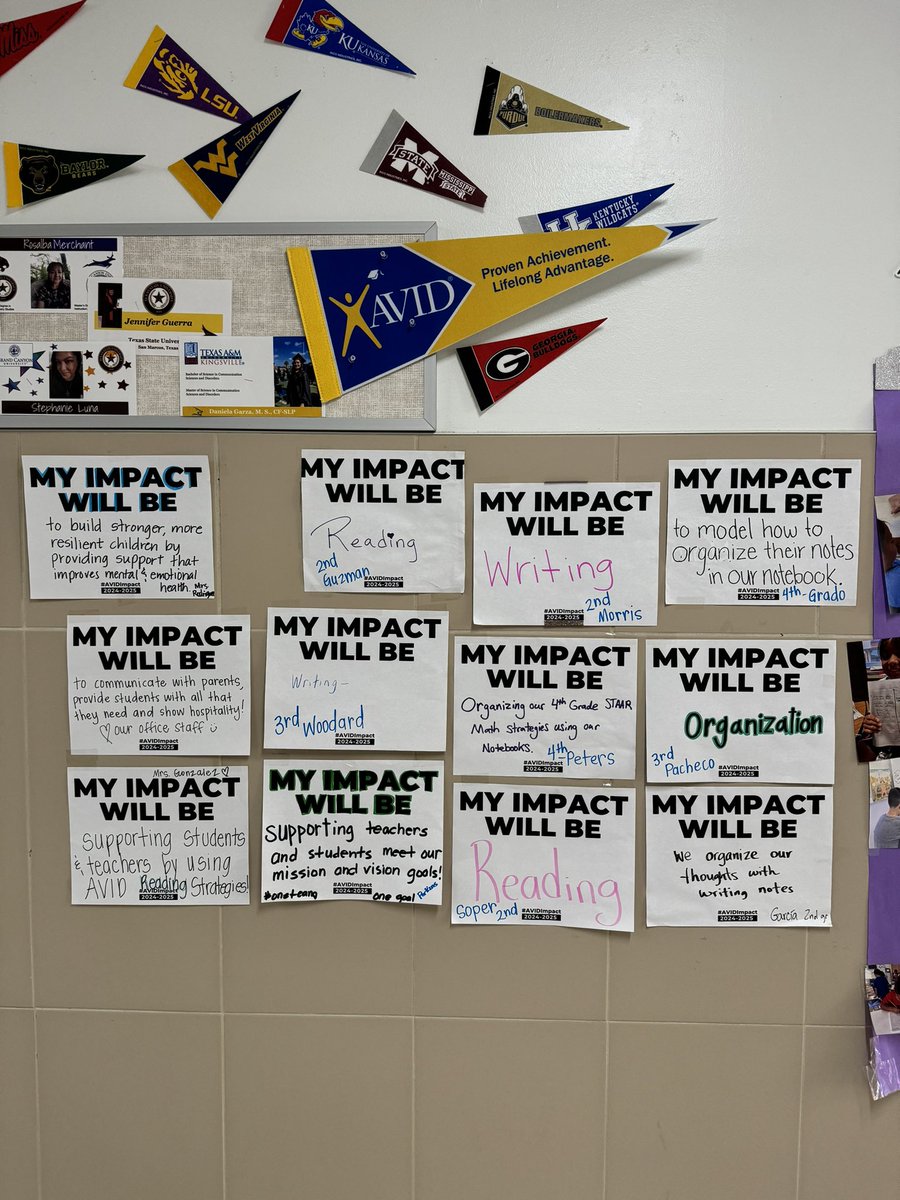 Miss
LSU
KU
KANSAS
BAYLOR
BEARS
WEST VIRGINIA
STATE
MISSISSIPPI
STATE
PURDUE
BOILERMAKERS
KENTUCKY
WILDCATS
Proven Achievement.
Lifelong Advantage.
AVID
G
GEORGIA
BULLDOGS
Rosalba Merchant
Jennifer Guerra
Texas State
San Marcos, Texas
GRAND CANYON
UNIVERSITY
Stephanie Luna
TEXAS A&M
KINGSVILLE
Bachelor of Science in Communication
Sciences and Disorders
Master of Science in Communication
Sciences and Disorders
Daniela Garza, M. S., CF-SLP
MY IMPACT
WILL BE
to build stronger, more
resilient children by
providing support that
improves mental & emotional
health Mrs.
#AVIDImpact
2024-2025
MY IMPACT
WILL BE
Reading
2nd
Guzman
#AVIDImpact
2024-2025
MY IMPACT
WILL BE
Writing
2nd
Morris
#AVIDImpact
2024-2025
MY IMPACT
WILL BE
to model how to
organize their notes
in our notebook.
4th-Grado
#AVIDImpact
2024-2025
MY IMPACT
WILL BE
to communicate with parents,
provide students with all that
they need and show hospitality!
♡ our office staff
#AVIDImpact
2024-2025
MY IMPACT
WILL BE
Writing-
3rd Woodard
#AVIDImpact
2024-2025
MY IMPACT
WILL BE
Organizing our 4th Grade STAAR
Math Strategies using our
Notebooks. 4th-Peters
#AVIDImpact
2024-2025
MY IMPACT
WILL BE
Organization
3rd
Pacheco
#AVIDImpact
2024-2025
Mrs. Gonzalez ♡
MY IMPACT
WILL BE
Supporting Students
& teachers by using
AVID Reading Strategies!
#AVIDImpact
2024-2025
MY IMPACT
WILL BE
Supporting teachers
and students meet our
mission and vision goals!
#oneteam one goal
#AVIDImpact
2024-2025
MY IMPACT
WILL BE
Reading
Soper 2nd
#AVIDImpact
2024-2025
MY IMPACT
WILL BE
We organize our
thoughts with
writing notes
Garcia 2nd gr
#AVIDImpact
2024-2025